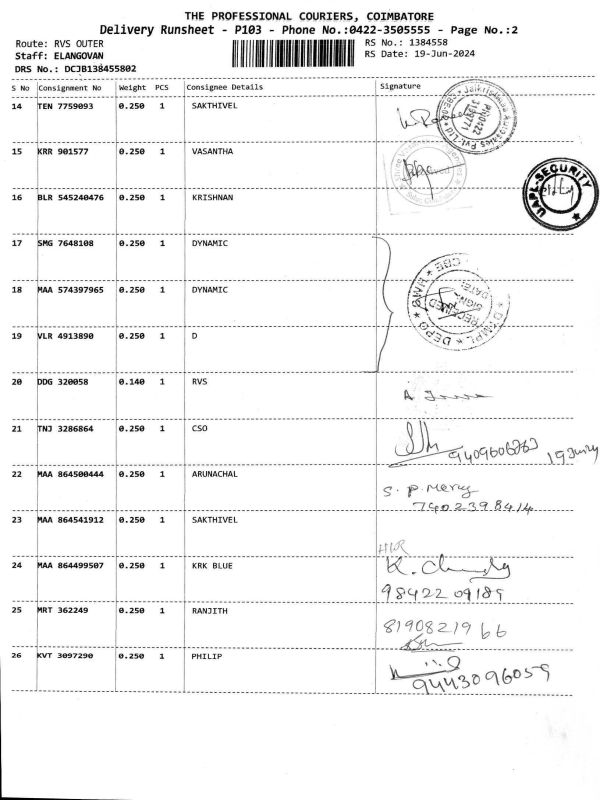 THE PROFESSIONAL COURIERS, COIMBATORE
Delivery Runsheet - P103 - Phone No.:0422-3505555 - Page No.:2
Route: RVS OUTER RS No.: 1384558
Staff: ELANGOVAN RS Date: 19-Jun-2024
DRS No.: DCJB138455802
S No Consignment No Weight PCS Consignee Details Signature
14 TEN 7759093 0.250 1 SAKTHIVEL
15 KRR 901577 0.250 1 VASANTHA
16 BLR 545240476 0.250 1 KRISHNAN
UAPL-SECURITY
17 SMG 7648108 0.250 1 DYNAMIC
18 MAA 574397965 0.250 1 DYNAMIC
RECEIVED
SIGN:
DATE:
19 VLR 4913890 0.250 1 D
20 DDG 320058 0.140 1 RVS
21 TNJ 3286864 0.250 1 CSO
22 MAA 864500444 0.250 1 ARUNACHAL
S. P. Mercy
7402398414
23 MAA 864541912 0.250 1 SAKTHIVEL
24 MAA 864499507 0.250 1 KRK BLUE
98422 09189
25 MRT 362249 0.250 1 RANJITH
8190821966
26 KVT 3097290 0.250 1 PHILIP
9443096059